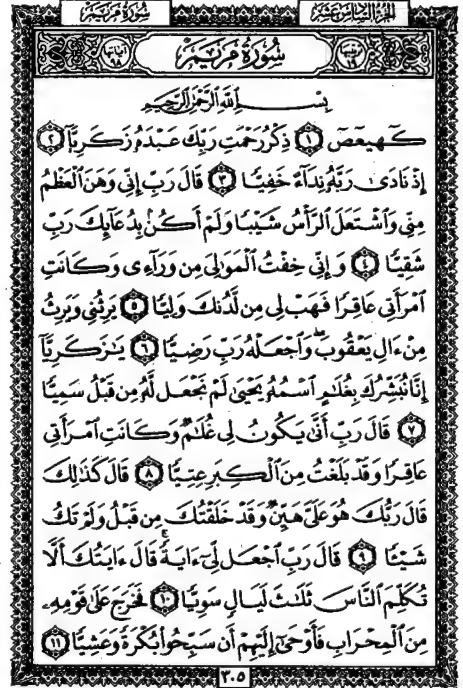 سُورَةُ مَرْيَمَ
الجُزْءُ السَّادِسُ عَشَرَ
آيَاتُهَا ٩٨
سُورَةُ مَرْيَمَ
تَرْتِيبُهَا ١٩
بِسْمِ ٱللَّهِ ٱلرَّحْمَٰنِ ٱلرَّحِيمِ
كٓهيعٓصٓ ١ ذِكْرُ رَحْمَتِ رَبِّكَ عَبْدَهُۥ زَكَرِيَّآ ٢
إِذْ نَادَىٰ رَبَّهُۥ نِدَآءً خَفِيًّا ٣ قَالَ رَبِّ إِنِّى وَهَنَ ٱلْعَظْمُ
مِنِّى وَٱشْتَعَلَ ٱلرَّأْسُ شَيْبًا وَلَمْ أَكُنۢ بِدُعَآئِكَ رَبِّ
شَقِيًّا ٤ وَإِنِّى خِفْتُ ٱلْمَوَٰلِىَ مِن وَرَآءِى وَكَانَتِ
ٱمْرَأَتِى عَاقِرًا فَهَبْ لِى مِن لَّدُنكَ وَلِيًّا ٥ يَرِثُنِى وَيَرِثُ
مِنْ ءَالِ يَعْقُوبَ ۖ وَٱجْعَلْهُ رَبِّ رَضِيًّا ٦ يَٰزَكَرِيَّآ
إِنَّا نُبَشِّرُكَ بِغُلَٰمٍ ٱسْمُهُۥ يَحْيَىٰ لَمْ نَجْعَل لَّهُۥ مِن قَبْلُ سَمِيًّا
٧ قَالَ رَبِّ أَنَّىٰ يَكُونُ لِى غُلَٰمٌ وَكَانَتِ ٱمْرَأَتِى
عَاقِرًا وَقَدْ بَلَغْتُ مِنَ ٱلْكِبَرِ عِتِيًّا ٨ قَالَ كَذَٰلِكَ
قَالَ رَبُّكَ هُوَ عَلَىَّ هَيِّنٌ وَقَدْ خَلَقْتُكَ مِن قَبْلُ وَلَمْ تَكُ
شَيْـًٔا ٩ قَالَ رَبِّ ٱجْعَل لِّىٓ ءَايَةً ۚ قَالَ ءَايَتُكَ أَلَّا
تُكَلِّمَ ٱلنَّاسَ ثَلَٰثَ لَيَالٍ سَوِيًّا ١٠ فَخَرَجَ عَلَىٰ قَوْمِهِۦ
مِنَ ٱلْمِحْرَابِ فَأَوْحَىٰٓ إِلَيْهِمْ أَن سَبِّحُوا۟ بُكْرَةً وَعَشِيًّا ١١
٣٠٥